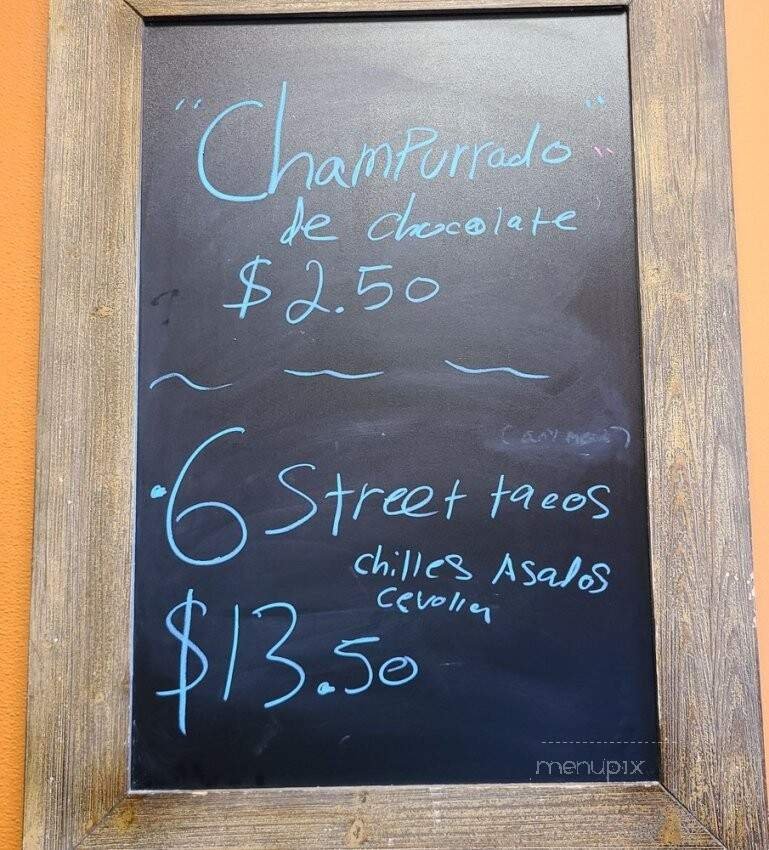 "Champurrado"
de chocolate
$2.50
(any meat)
6 Street tacos
chilles Asados
cevolla
$13.50
menupix